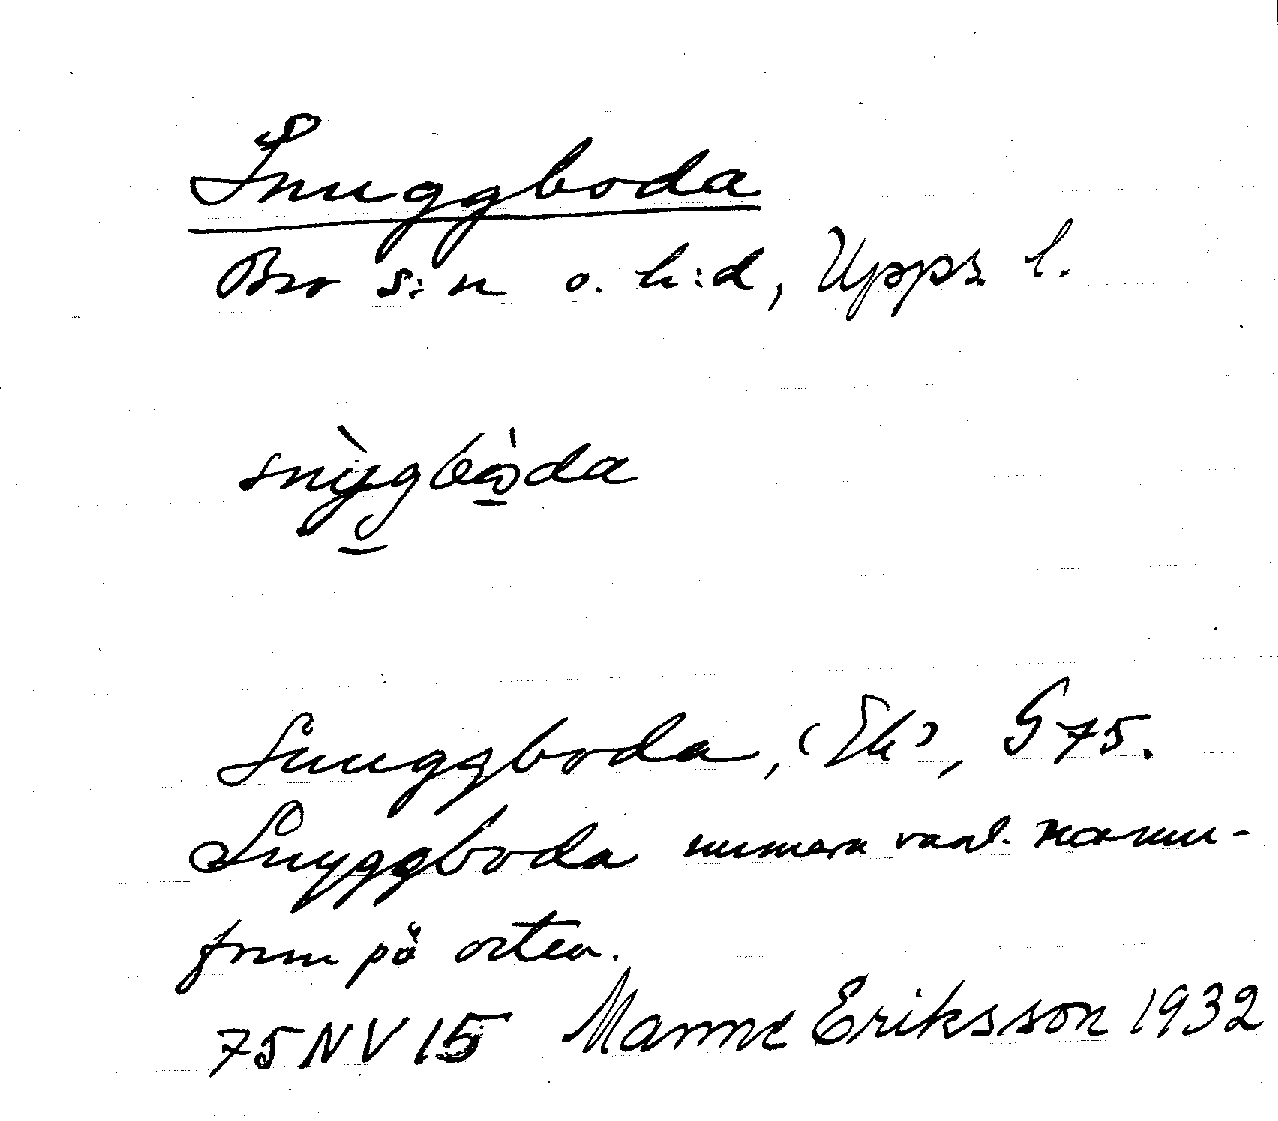 Snuggboda
Bro s:n o. h:d, Upps. l.
snỳgbòda
Snuggboda, (Ek), G 75.
Snyggboda numera vanl. namn-
form på orten.
75 NV 15 Manne Eriksson 1932